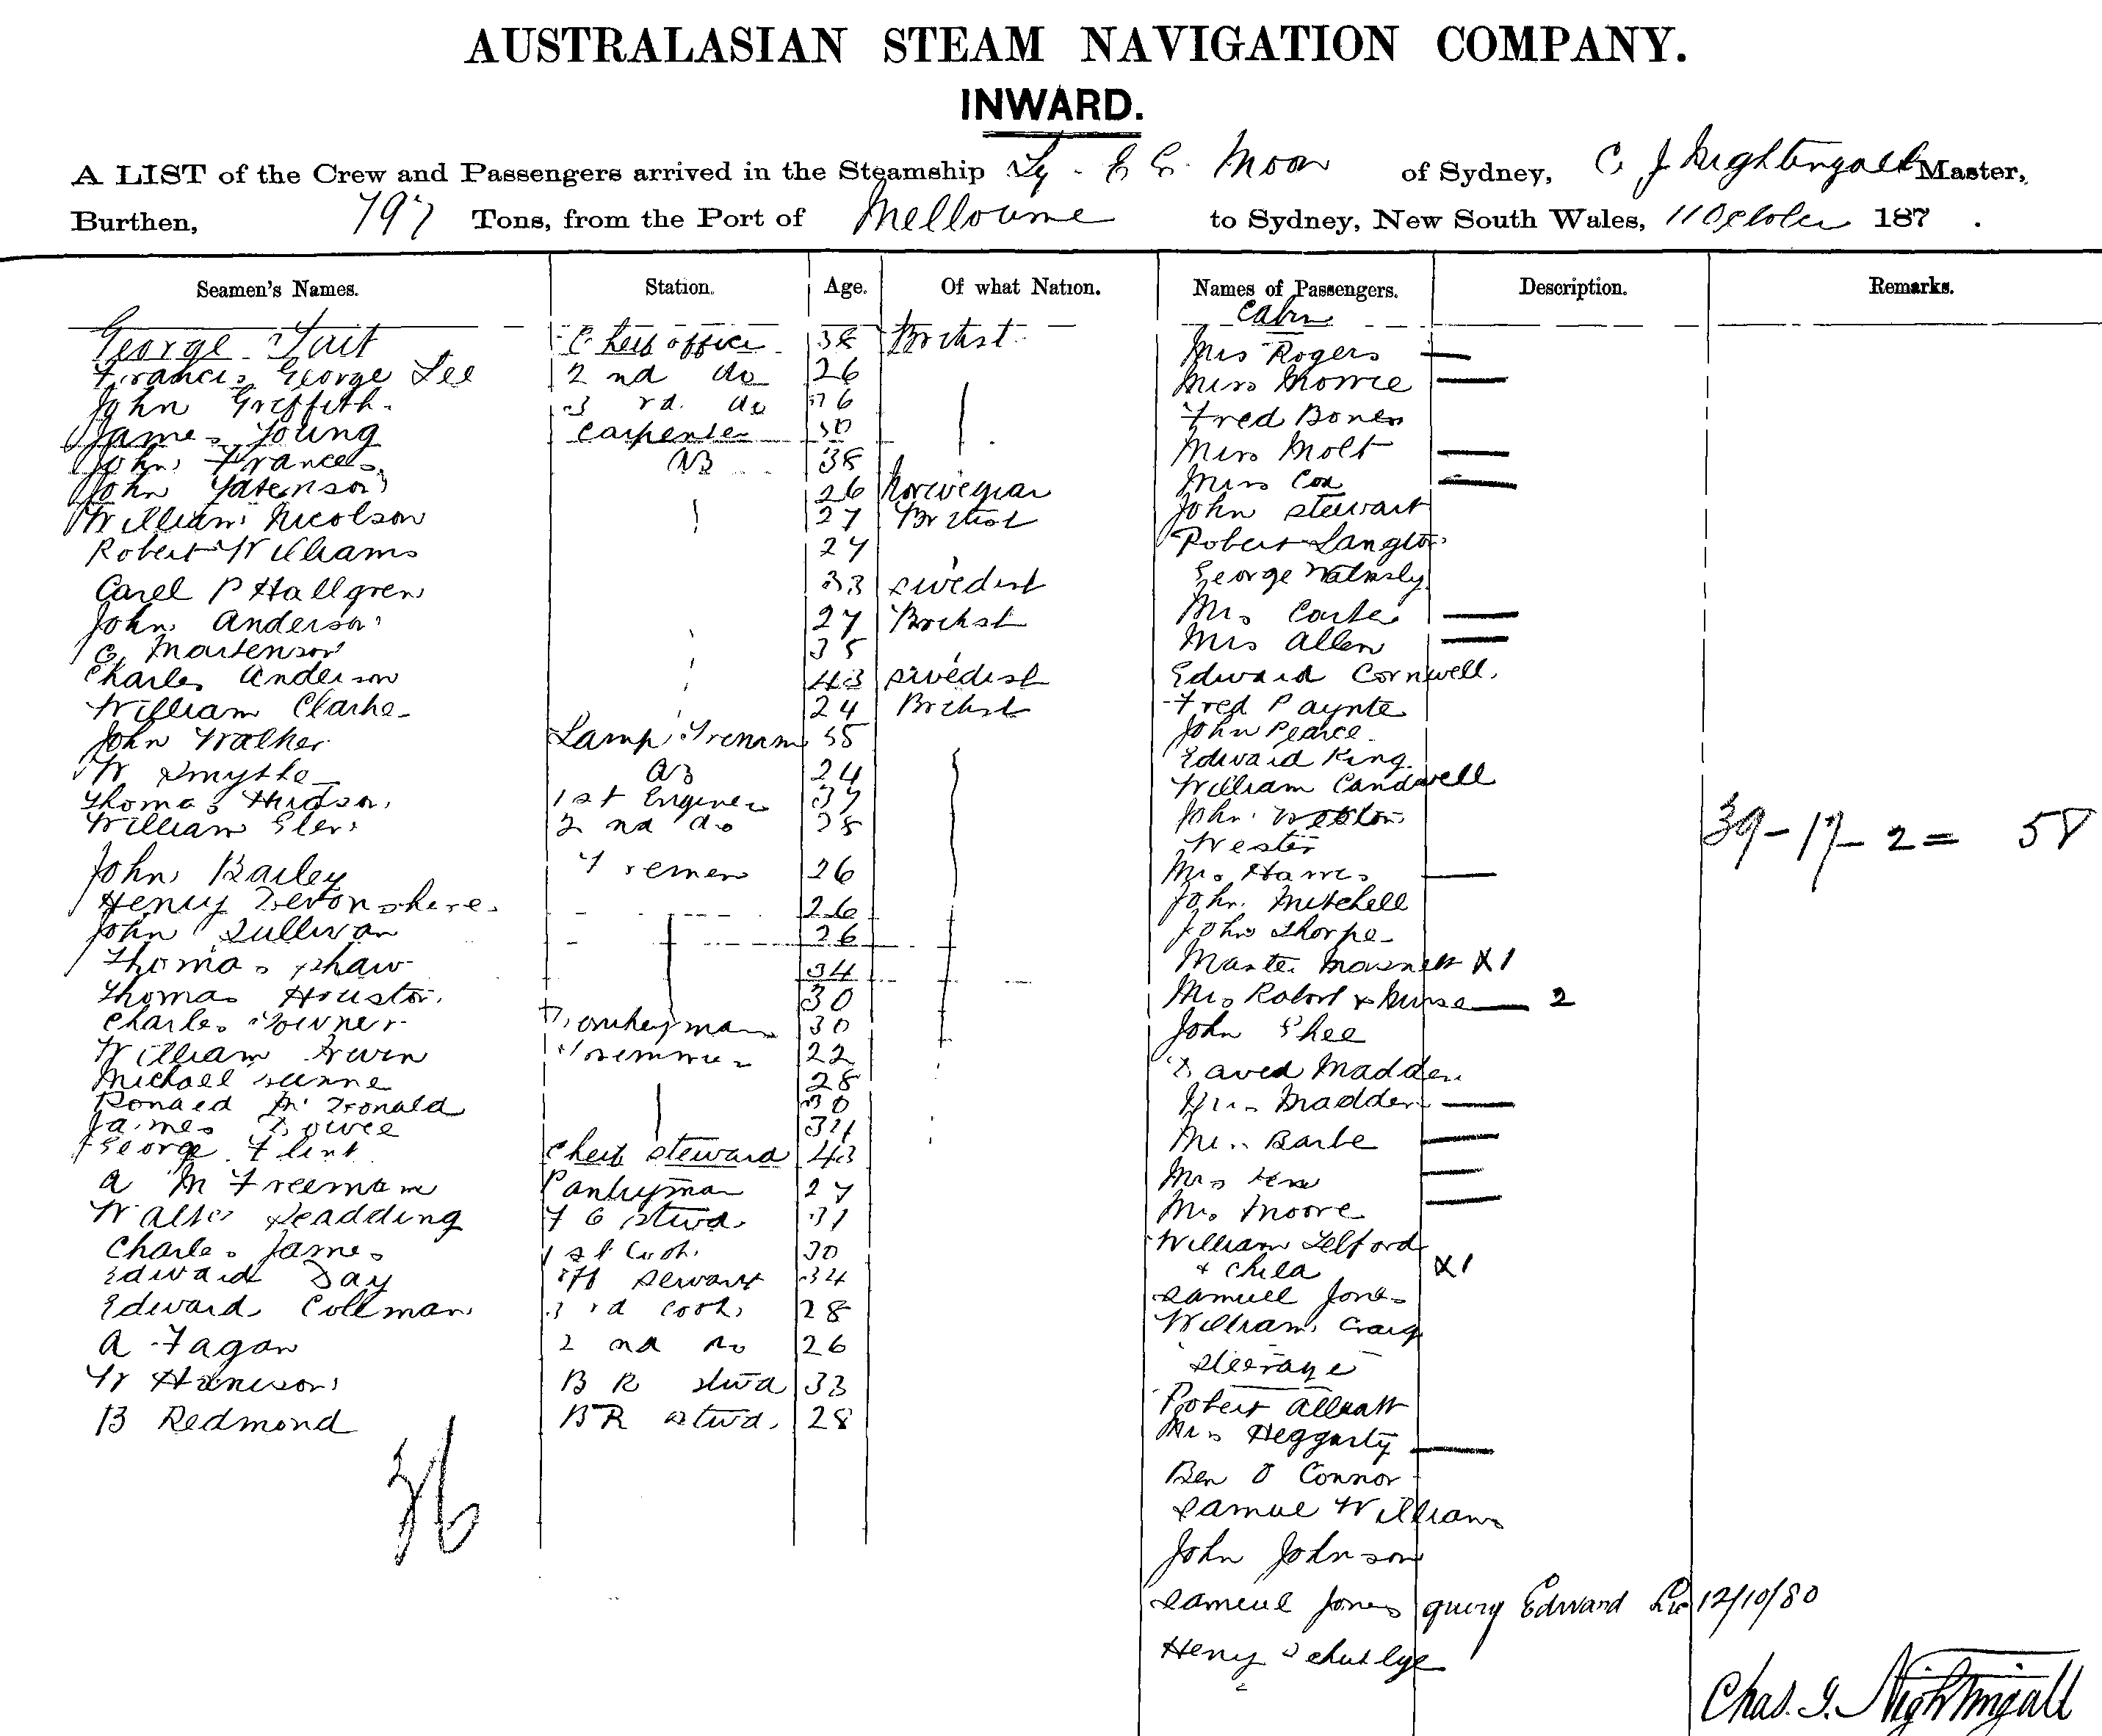 AUSTRALASIAN STEAM NAVIGATION COMPANY.
INWARD.
A LIST of the Crew and Passengers arrived in the Steamship Ly. E G. Moon of Sydney, C J Nightingall Master,
Burthen, 797 Tons, from the Port of Melbourne to Sydney, New South Wales, 11 October 187 .
Seamen's Names. Station. Age. Of what Nation. Names of Passengers. Description. Remarks.
Cabin
George Tait Cheif officer 38 British Mrs Rogers —
Francis George Lee 2nd do 26 Miss —
John Griffith 3rd. do 26 Fred Bones
James Young Carpenter 30 Miss Molt —
John Frances AB 38 Miss Cox —
John 26 Norwegian John Stewart
William Nicolson 27 British Robert Langton
Robert Williams 27 George Walmsly
Carel P Hallgren 33 Swedish Mrs Carter —
John Anderson 27 British Mrs Allen —
C Martenson 35 Edward Cornwell
Charles Anderson 43 Swedish Fred Paynter
William Clarke 24 British John Pearce
John Walker Lamp Trimmer 55 Edward King
W Smythe AB 24 William Candwell
Thomas Hudson 1st Engineer 37 John
William 2nd do 28 Wester
39-17-2= 58
John Bailey Firemen 26 Mrs Harris —
Henry Devonshere 26 John Mitchell
John Sullivan 26 John Thorpe
Thomas Shaw 34 Master X1
Thomas Houston 30 Mrs Robert & Nurse — 2
Charles Donkeyman 30 John Shee
William Irwin Trimmer 22 David Madden
Michael Dunne 28 Mrs Madden —
Ronald McDonald 30 Mrs Barbe —
James 34 Mrs —
George Flint Cheif Steward 43 Mrs Moore —
A M Freeman Pantryman 27 William Telford
Walter Readding F C Stwd 31 & Child X1
Charles James 1st Cook 30 Samuell Jones
Edward Day Servant 34 William Craig
Edward Collman 3rd cook 28 Steerage
A Fagan 2nd do 26 Robert
W Harrison B R Stwd 33 Mrs Heggarty —
B Redmond BR Stwd. 28 Ben O Connor
36
Samuel Williams
John Johnson
Samuel Jones query Edward 12/10/80
Henry
Chas. J. Nightingall